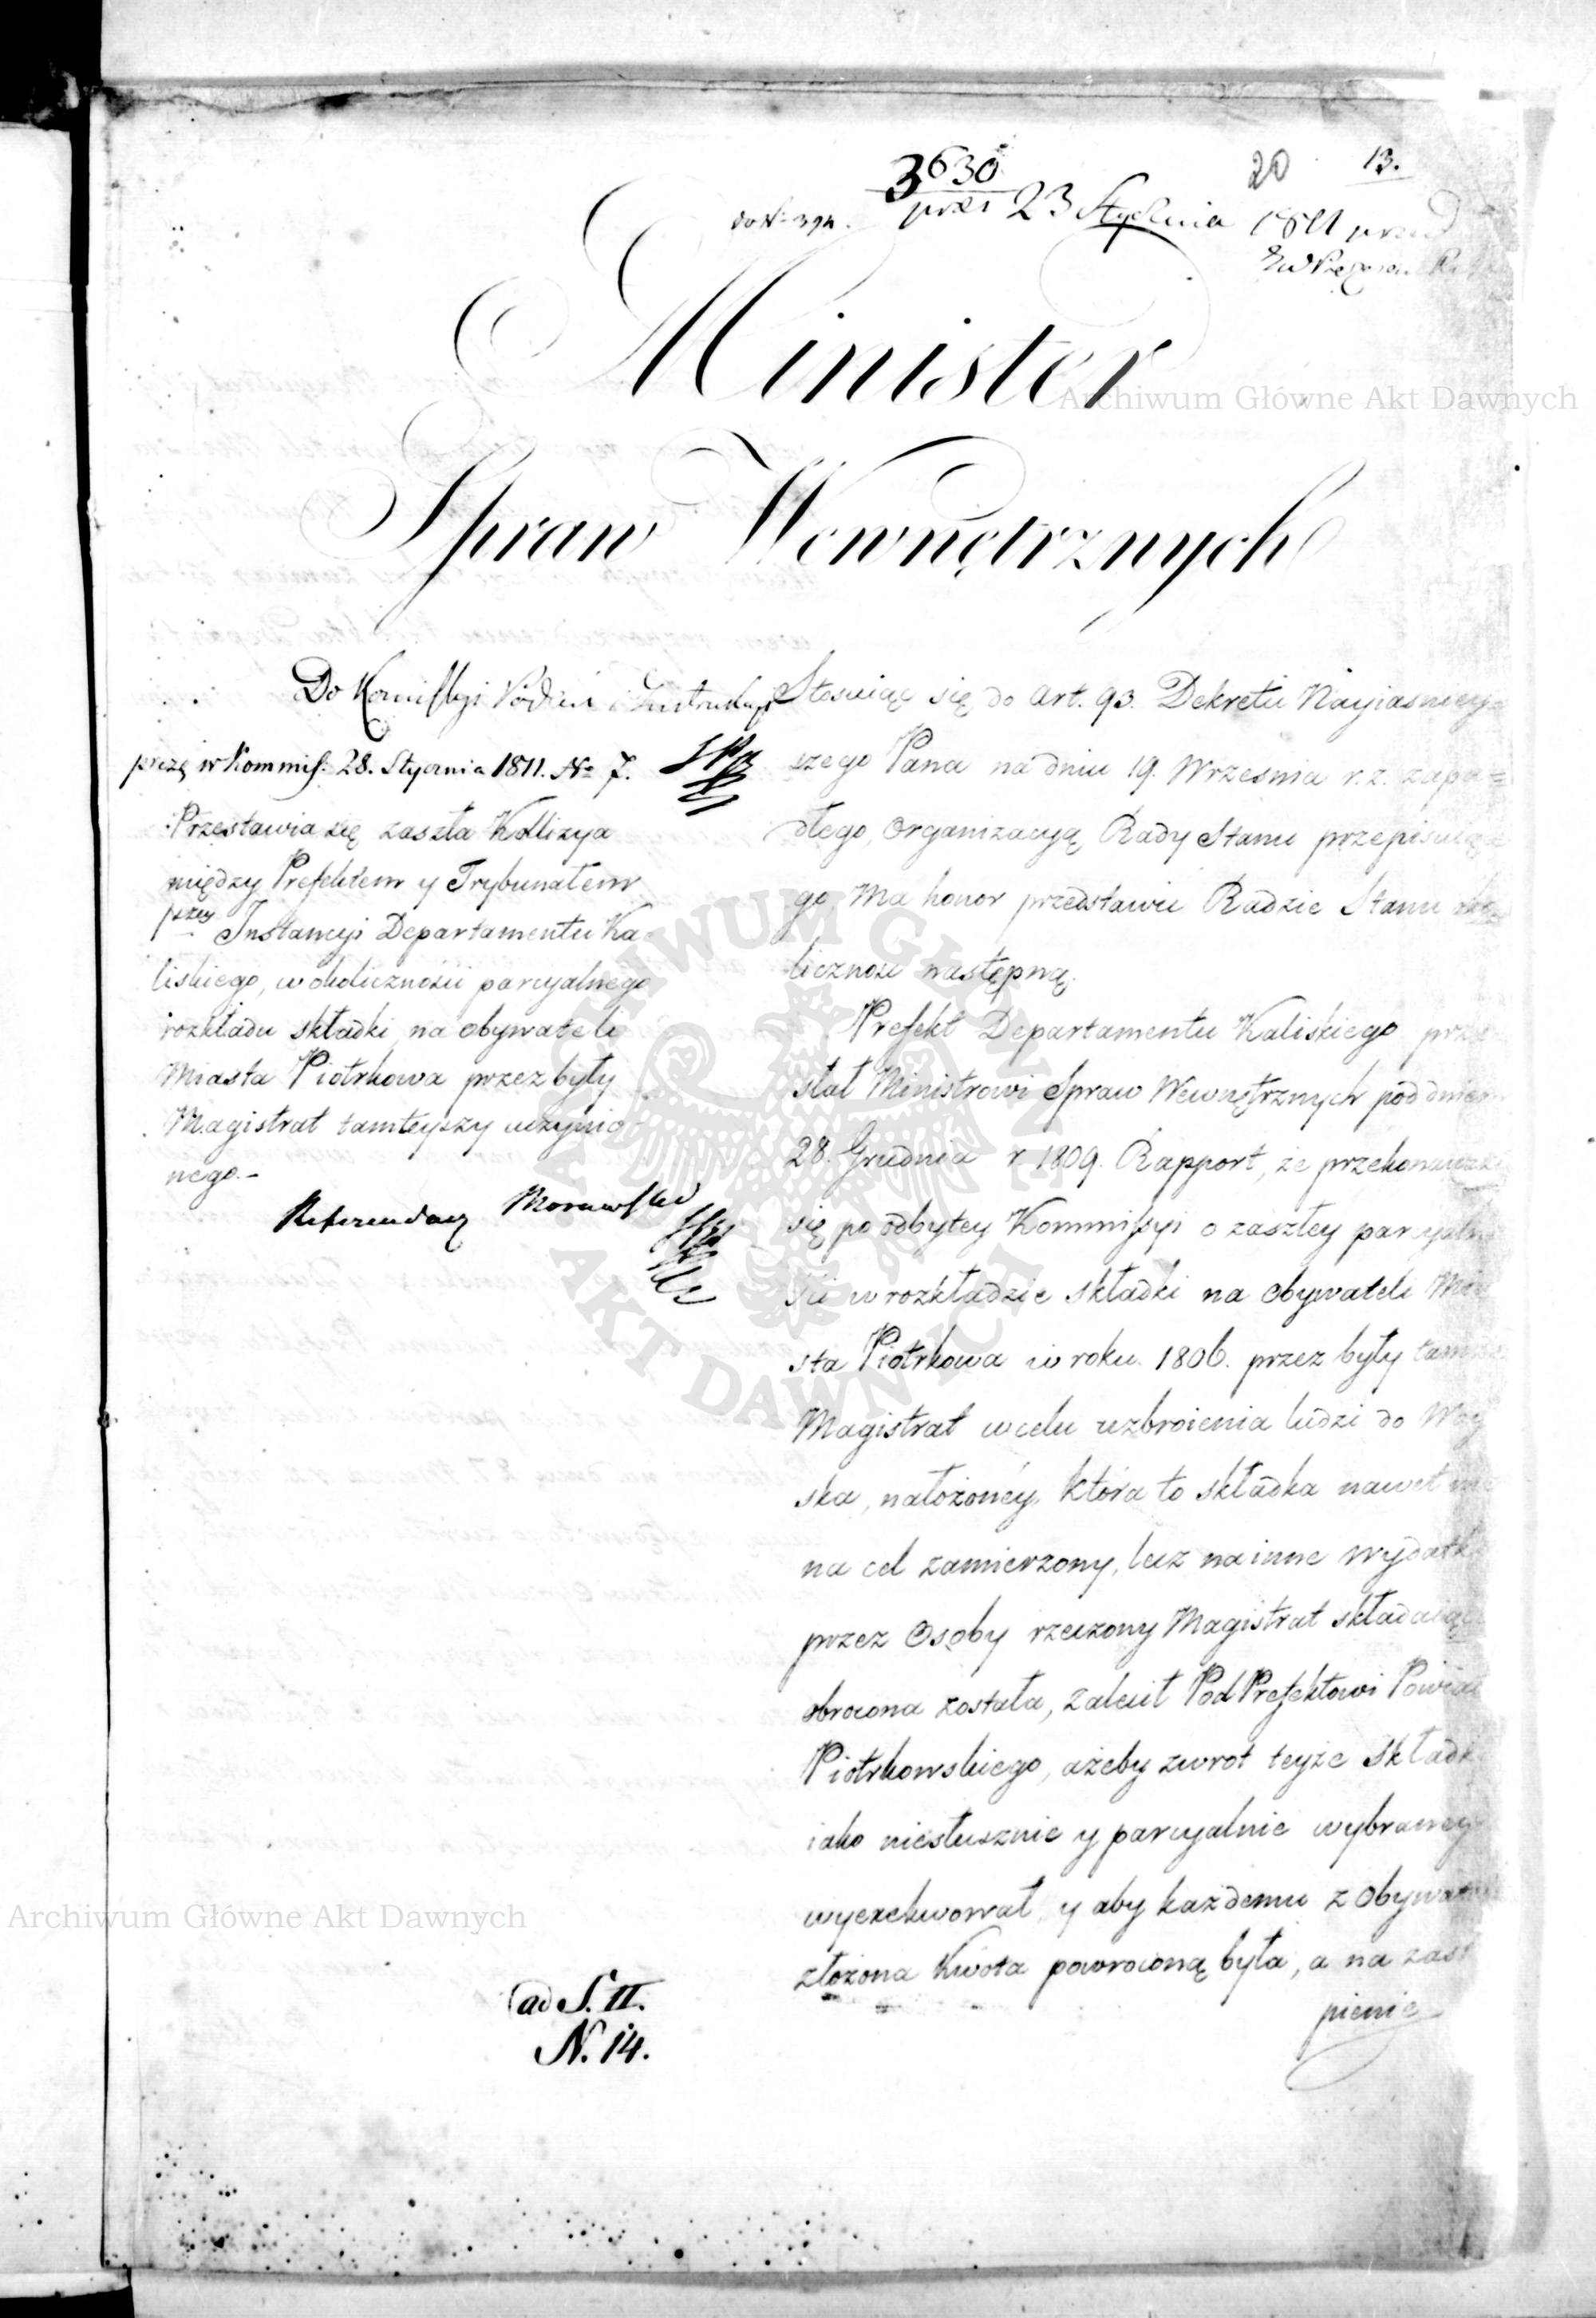 3630
20 13.
do N. 394. prze 23 Stycznia 1811
Minister
Archiwum Główne Akt Dawnych
Spraw Wewnętrznych
Do Kommissyi Podań i Instrukcyi
przę w Kommis: 28. Stycznia 1811. No 7.
Przestawia się zaszła Kollizya
między Prefektem y Trybunałem
przy Instancyi Departamentu Ka-
liskiego, w okoliczności parcyalnego
rozkładu składki na obywateli
Miasta Piotrkowa przez były
Magistrat tamteyszy uczynio-
nego.-
Referendarz Morawski
Stosuiąc się do Art. 93. Dekretu Nayiasniey-
szego Pana na dniu 19. Września r. z. zapa=
dłego, Organizacyą Rady Stanu przepisuiące
go, Ma honor przedstawić Radzie Stanu oko
liczność następną.
Prefekt Departamentu Kaliskiego prze
słał Ministrowi Spraw Wewnętrznych pod dniem
28. Grudnia r. 1809. Rapport, że przekonawszy
się po odbytey Kommissyi o zaszłey parcyalno
ści w rozkładzie składki na Obywateli Mia
sta Piotrkowa w roku 1806. przez były
Magistrat w celu uzbroienia ludzi do Woy
ska, nałożoney, która to składka nawet nie
na cel zamierzony, lecz na inne wydatki
przez Osoby rzeczony Magistrat składaiące
obrócona została, zalecił Pod Prefektowi Powiatu
Piotrkowskiego, ażeby zwrot teyże Składki
iako niesłusznie y parcyalnie wybraney
wyexekwował, y aby każdemu z Obywateli
złożona Kwota powróconą była, a na zastą
pienie
Archiwum Główne Akt Dawnych
ad S. II.
N. 14.
ARCHIWUM GŁÓWNE AKT DAWNYCH